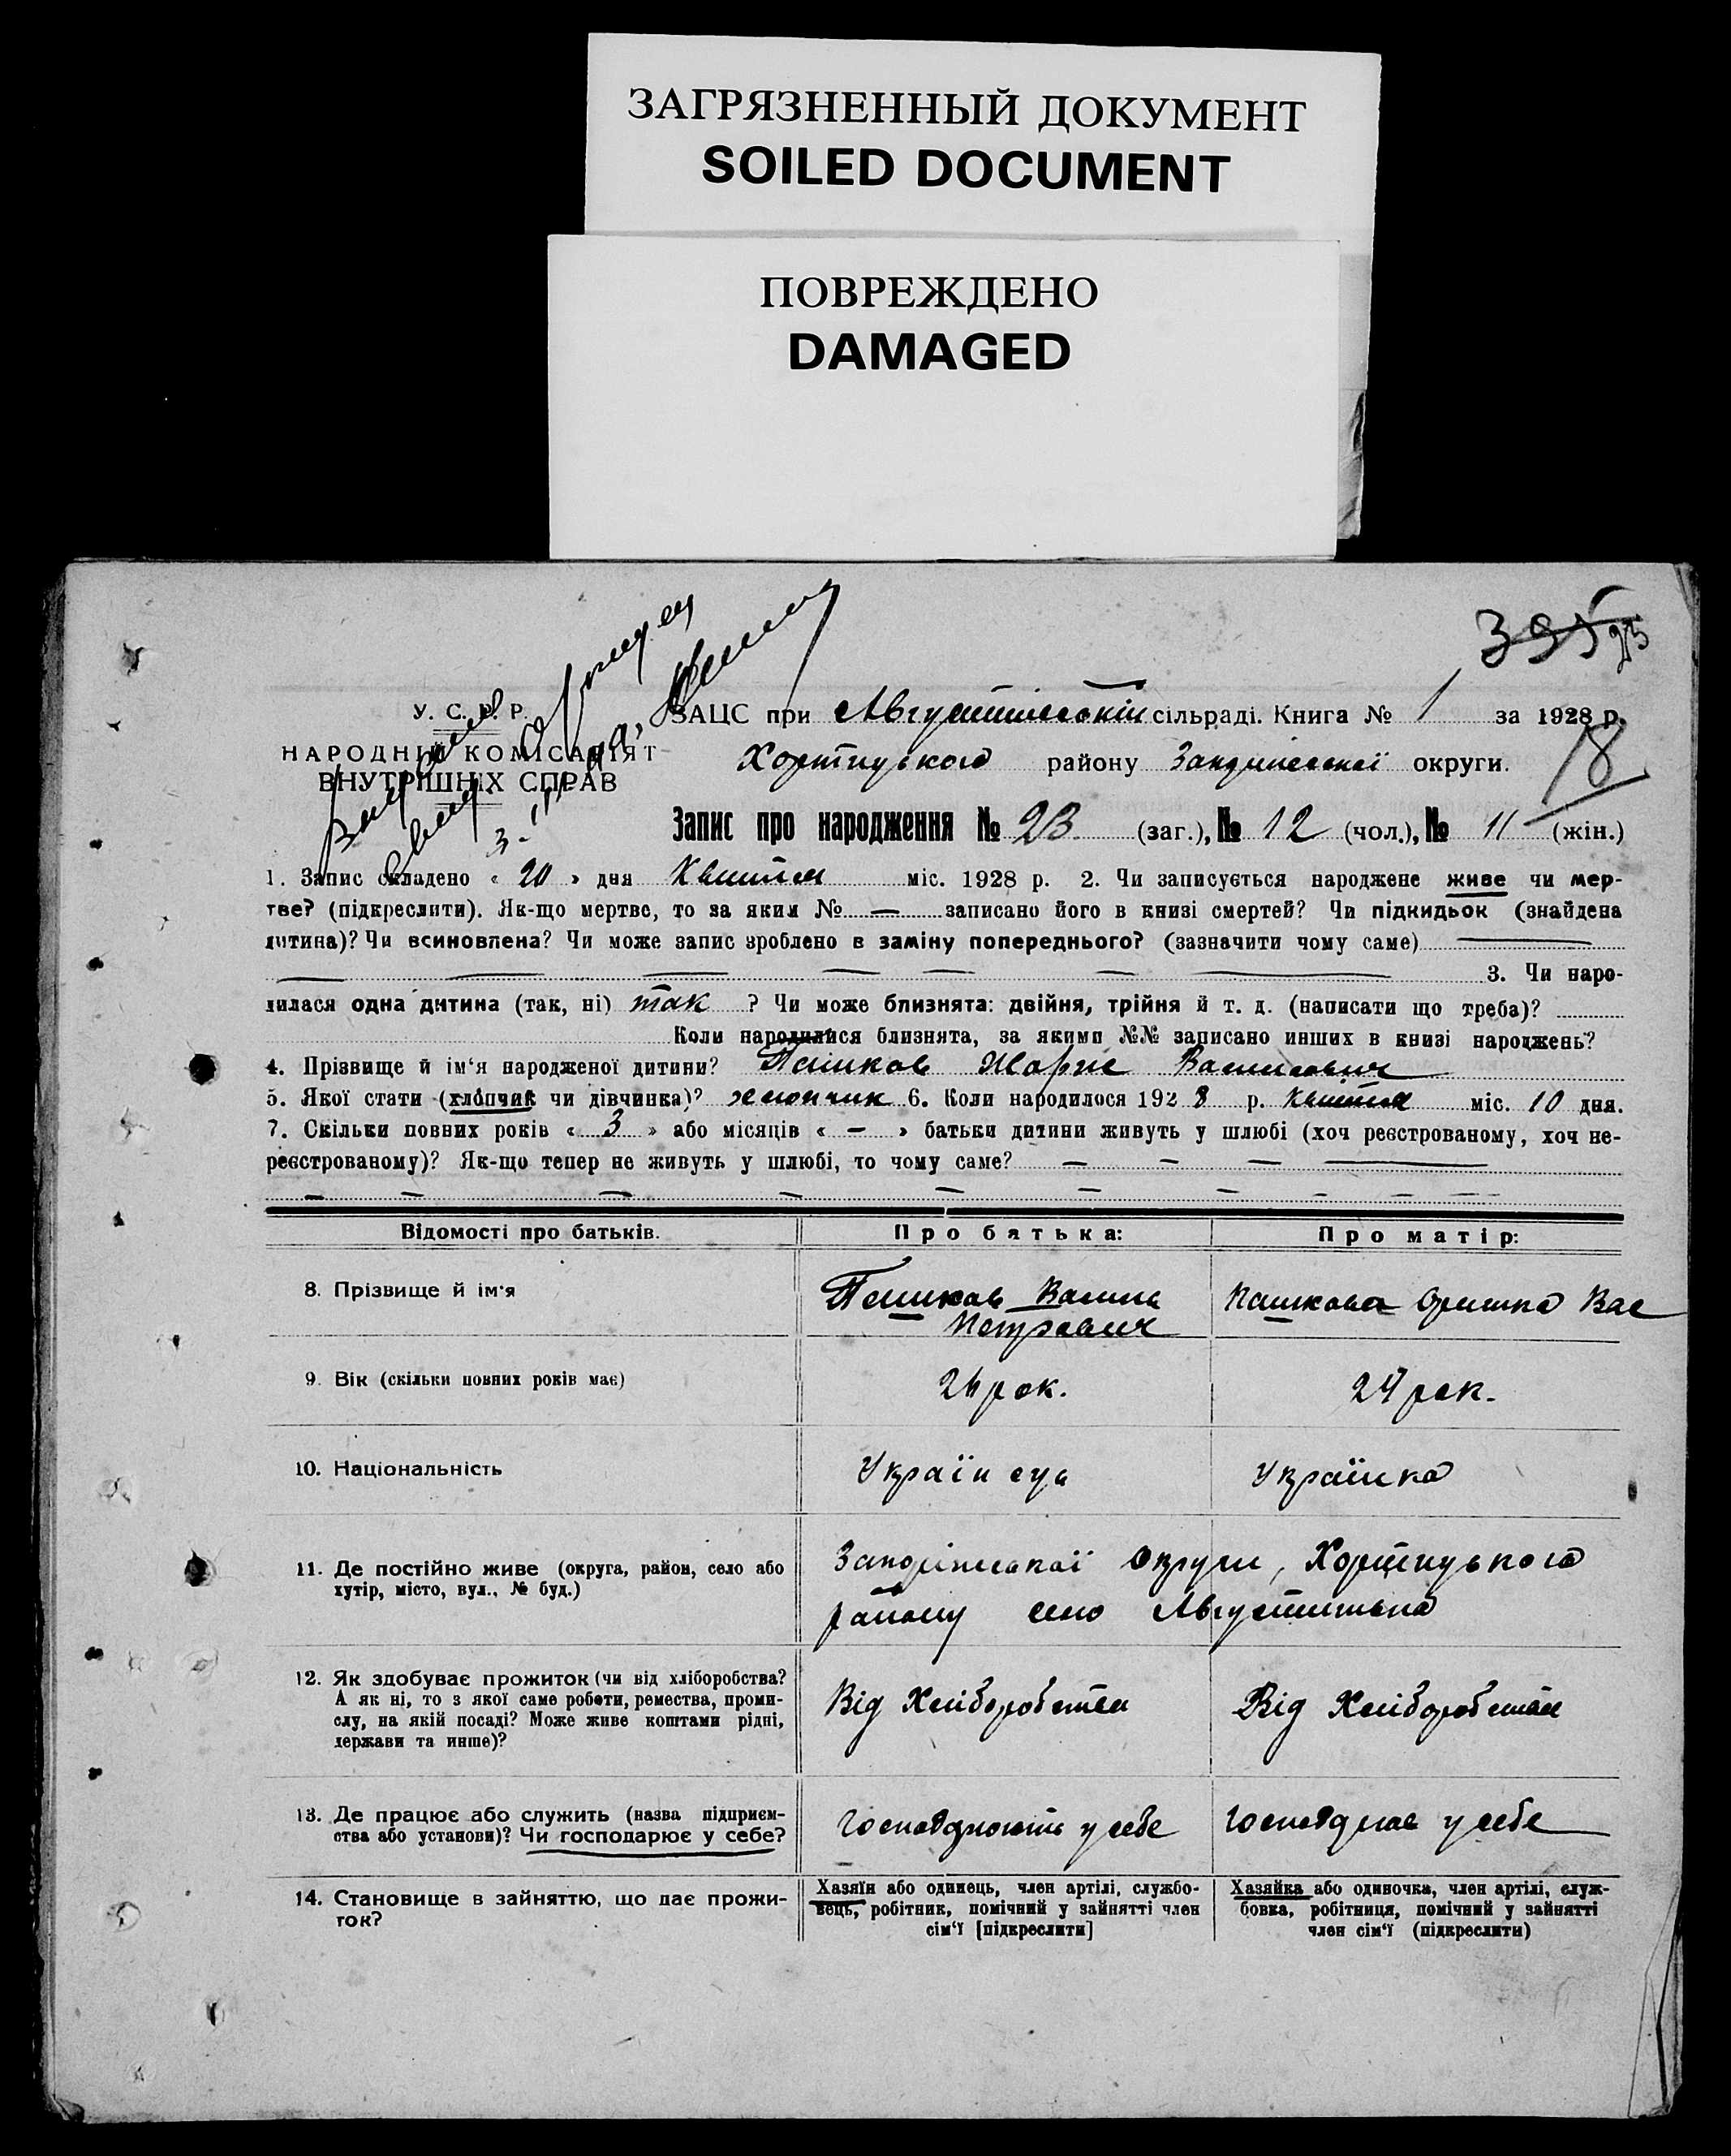 ЗАГРЯЗНЕННЫЙ ДОКУМЕНТ
SOILED DOCUMENT
ПОВРЕЖДЕНО
DAMAGED
395
У. С. Р. Р.
НАРОДНІЙ КОМІСАРІЯТ
ВНУТРІШНІХ СПРАВ
ЗАЦС при сільраді. Книга № 1 за 1928 р.
Хортицького району округи.
18
Запис про народження № 23 (заг.), № 12 (чол.), № 11 (жін.)
1. Запис складено « 20 » дня Квітня міс. 1928 р. 2. Чи записується народжене живе чи мер-
тве? (підкреслити). Як-що мертве, то за яким № — записано його в книзі смертей? Чи підкидьок (знайдена
дитина)? Чи всиновлена? Чи може запис зроблено в заміну попереднього? (зазначити чому саме) —
— — — — — — — 3. Чи наро-
дилася одна дитина (так, ні) так ? Чи може близнята: двійня, трійня й т. д. (написати що треба)?
Коли народилися близнята, за якими №№ записано инших в книзі народжень?
4. Прізвище й ім'я народженої дитини? Пашков Жорж Васильович
5. Якої стати (хлопчик чи дівчинка)? хлопчик 6. Коли народилося 1928 р. Квітня міс. 10 дня.
7. Скільки повних років « 3 » або місяців « — » батьки дитини живуть у шлюбі (хоч реєстрованому, хоч не-
реєстрованому)? Як-що тепер не живуть у шлюбі, то чому саме? — — — —
— — — — — — — — — —
Відомості про батьків. Про батька: Про матір:
8. Прізвище й ім'я Пашков Василь Пашкова Оришка Вас
Петрович
9. Вік (скільки повних років має) рок. рок.
10. Національність Українець Українка
11. Де постійно живе (округа, район, село або Запоріжської округи, Хортицького
хутір, місто, вул., № буд.) району село
12. Як здобуває прожиток (чи від хліборобства? Від Хліборобства Від Хліборобства
А як ні, то з якої саме роботи, ремества, проми-
слу, на якій посаді? Може живе коштами рідні,
держави та инше)?
13. Де працює або служить (назва підприєм- у себе у себе
ства або установи)? Чи господарює у себе?
14. Становище в зайняттю, що дає прожи- Хазяїн або одинець, член артілі, службо- Хазяйка або одиночка, член артілі, служ-
ток? вець, робітник, помічний у зайнятті член бовка, робітниця, помічний у зайнятті
сім'ї [підкреслити] член сім'ї (підкреслити)